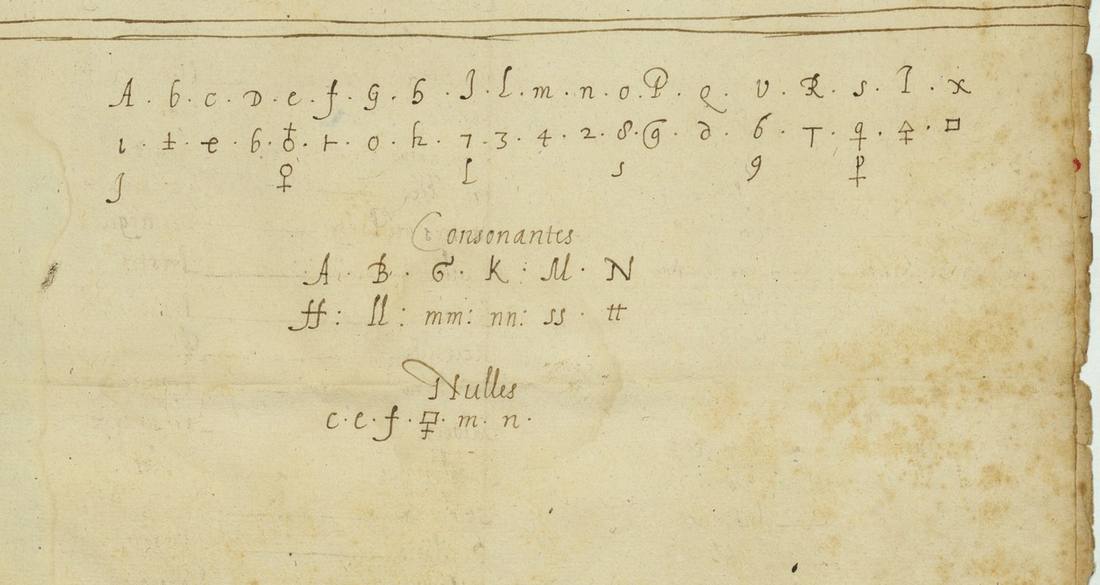 A · b · c · D · e · f · g · h · J · l · m · n · o · P · q · v · R · s · T · x
ı · ± · e · 6 · ♁ · ⊦ · o · h · 7 · 3 · 4 · 2 · 8 · 9 · d · 6 · T · q · ♤ · □
J ♀ L s 9 P
Consonantes
A · B · G · K · M · N
ff : ll : mm : nn : ss · tt
Nulles
c · e · f · m · n ·